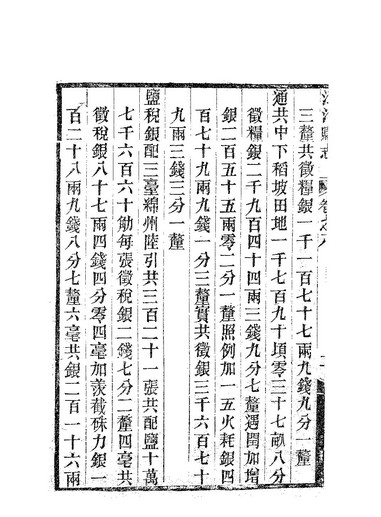 縣志
卷之八
三釐共徵糧銀一千一百七十七兩九錢九分一釐
通共中下稻坡田地一千七百九十頃零三十七畝八分
徵糧銀二千九百四十四兩三錢九分七釐遇閏加增
銀二百五十五兩零二分一釐照例加一五火耗銀四
百七十九兩九錢一分三釐實共徵銀三千六百七十
九兩三錢三分一釐
鹽稅銀配三臺綿州陸引共三百二十一張共配鹽十萬
七千六百六十觔每張徵稅銀二錢七分二釐四毫共
徵稅銀八十七兩四錢四分零四毫加羨截硃力銀一
百二十八兩九錢八分七釐六毫共銀二百一十六兩